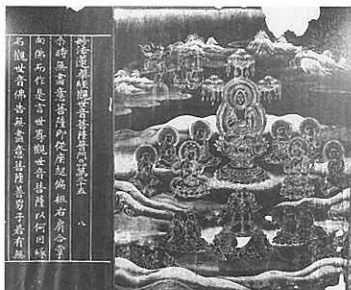 妙法蓮華經觀世音菩薩普門品第二十五　八
尒時無盡意菩薩即從座起偏袒右肩合掌
向佛而作是言世尊觀世音菩薩以何因緣
名觀世音佛告無盡意菩薩善男子若有無